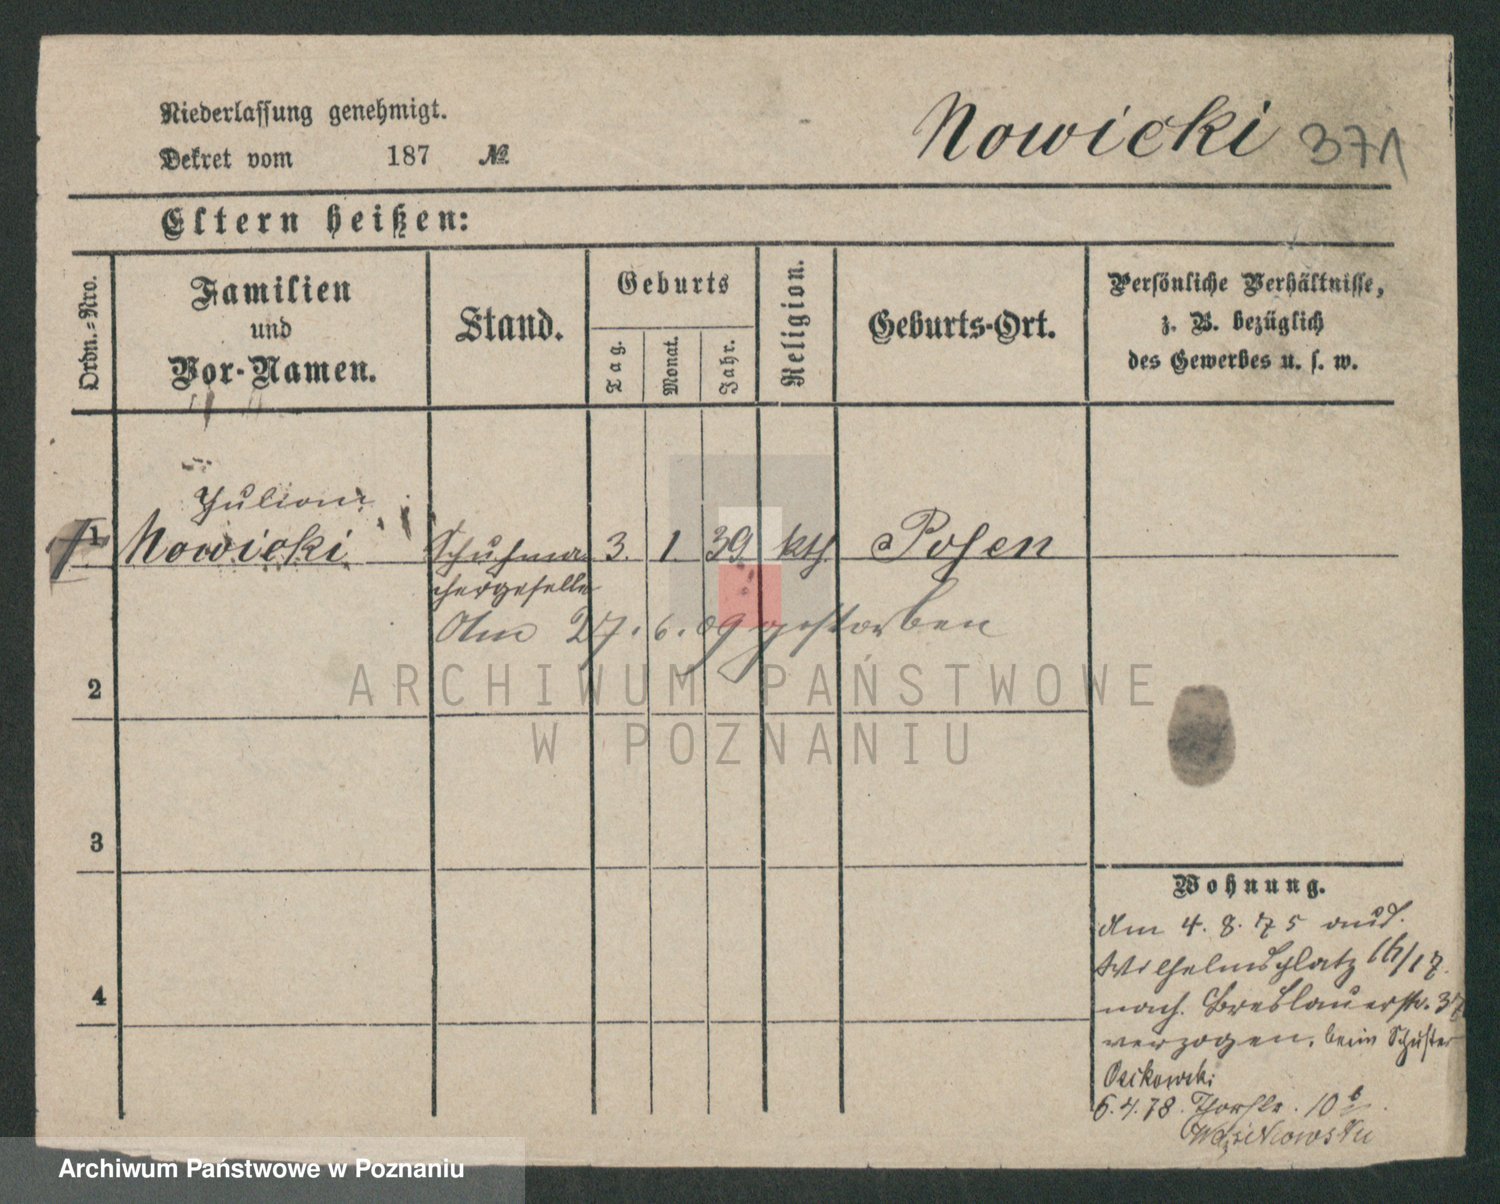 Niederlassung genehmigt.
Dekret vom 187 №
Nowicki 371
Eltern heißen:
Ordn.-Nro.
Familien
und
Vor-Namen.
Stand.
Geburts
Tag.
Monat.
Jahr.
Religion.
Geburts-Ort.
Persönliche Verhältnisse,
z. B. bezüglich
des Gewerbes u. s. w.
Julian
1 Nowicki Schuhma- 3. 1. 39. kth. Posen
chergeselle
Am 27.6.09 gestorben
2
ARCHIWUM PAŃSTWOWE
W POZNANIU
3
Wohnung.
Am 4. 8. 75 aus.
Wilhelmsplatz 16/17.
4
nach Breslauerstr. 37
verzogen, beim Schuster
6.4.78. 10
Archiwum Państwowe w Poznaniu